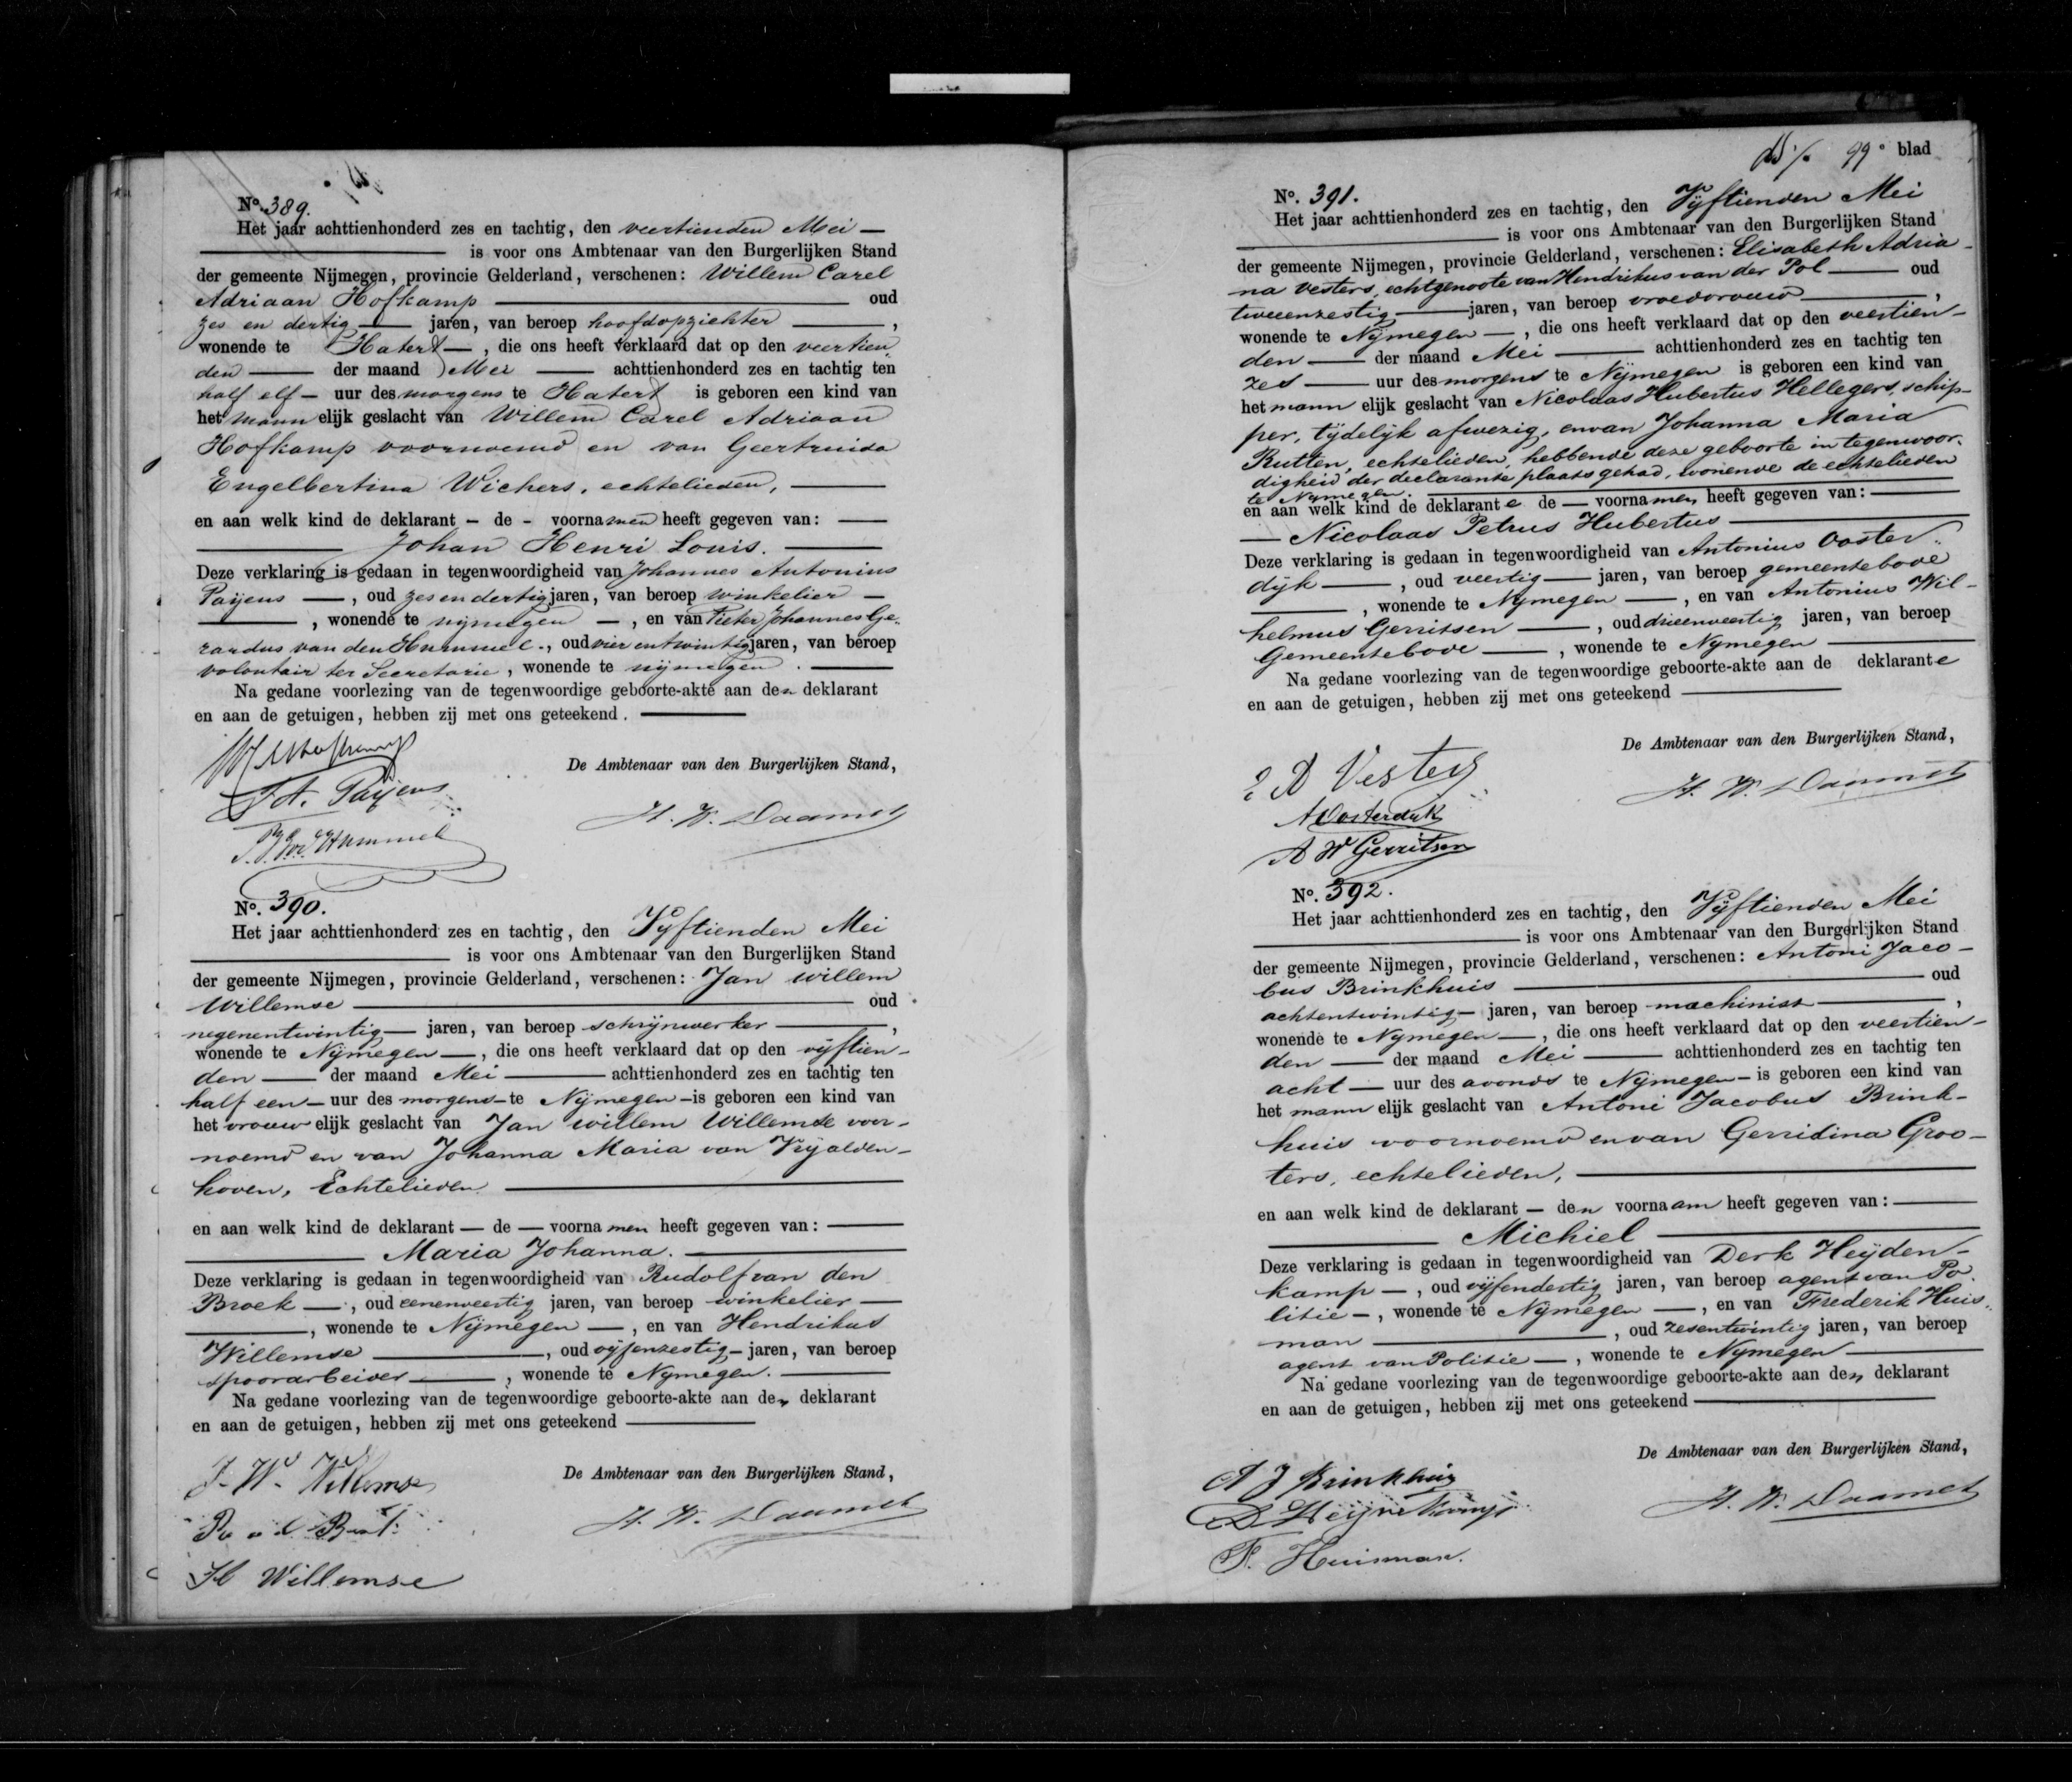 No. 389.
Het jaar achttienhonderd zes en tachtig, den veertienden Mei —
is voor ons Ambtenaar van den Burgerlijken Stand
der gemeente Nijmegen, provincie Gelderland, verschenen: Willem Carel
Adriaan Hofkamp — oud
zes en dertig — jaren, van beroep hoofdopzichter —,
wonende te Hatert —, die ons heeft verklaard dat op den veertien„
den — der maand Mei — achttienhonderd zes en tachtig ten
half elf — uur des morgens te Hatert is geboren een kind van
het mannelijk geslacht van Willem Carel Adriaan
Hofkamp voornoemd en van Geertruida
Engelbertina Wichers, echtelieden, —
en aan welk kind de deklarant – de – voornamen heeft gegeven van: —
— Johan Henri Louis. —
Deze verklaring is gedaan in tegenwoordigheid van Johannes Antonius
Paijens —, oud zesendertig jaren, van beroep winkelier —
—, wonende te nijmegen —, en van Pieter Johannes Ge„
rardus van den Hummel., oud vier en twintig jaren, van beroep
volontair ter Secretarie, wonende te nijmegen. —
Na gedane voorlezing van de tegenwoordige geboorte-akte aan den deklarant
en aan de getuigen, hebben zij met ons geteekend. —
De Ambtenaar van den Burgerlijken Stand,
J. A. Paijens
H. W. Daamen
P.J.G.v.d. Hummel
No. 390.
Het jaar achttienhonderd zes en tachtig, den Vijftienden Mei
— is voor ons Ambtenaar van den Burgerlijken Stand
der gemeente Nijmegen, provincie Gelderland, verschenen: Jan willem
Willemse — oud
negenentwintig — jaren, van beroep schrijnwerker —,
wonende te Nijmegen —, die ons heeft verklaard dat op den vijftien-
den — der maand Mei — achttienhonderd zes en tachtig ten
half een — uur des morgens — te Nijmegen — is geboren een kind van
het vrouwelijk geslacht van Jan willem Willemse voor-
noemd en van Johanna Maria van Vrijalden-
hoven, Echtelieden —
en aan welk kind de deklarant — de — voornamen heeft gegeven van: —
— Maria Johanna. —
Deze verklaring is gedaan in tegenwoordigheid van Rudolf van den
Broek —, oud eenenveertig jaren, van beroep winkelier —
—, wonende te Nijmegen —, en van Hendrikus
Willemse —, oud vijfenzestig — jaren, van beroep
spoorarbeider —, wonende te Nymegen. —
Na gedane voorlezing van de tegenwoordige geboorte-akte aan den deklarant
en aan de getuigen, hebben zij met ons geteekend —
J. W. Willemse
De Ambtenaar van den Burgerlijken Stand,
H. W. Daamen
H Willemse
99e blad
No. 391.
Het jaar achttienhonderd zes en tachtig, den Vijftienden Mei
— is voor ons Ambtenaar van den Burgerlijken Stand
der gemeente Nijmegen, provincie Gelderland, verschenen: Elisabeth Adria-
na Vesters, echtgenoote van Hendrikus van der Pol — oud
tweeenzestig — jaren, van beroep vroedvrouw —,
wonende te Nijmegen —, die ons heeft verklaard dat op den veertien-
den — der maand Mei — achttienhonderd zes en tachtig ten
zes — uur des morgens te Nijmegen is geboren een kind van
het mannelijk geslacht van Nicolaas Hubertus Hellegers, schip-
per, tijdelijk afwezig, en van Johanna Maria
Rutten, echtelieden, hebbende deze geboorte in tegenwoor-
digheid der declarante plaats gehad, wonende de echtelieden
te Nymegen. —
en aan welk kind de deklarante de — voornamen heeft gegeven van: —
— Nicolaas Petrus Hubertus —
Deze verklaring is gedaan in tegenwoordigheid van Antonius Ooster„
dijk —, oud veertig — jaren, van beroep gemeentebode
—, wonende te Nymegen —, en van Antonius Wil-
helmus Gerritsen —, oud drieenveertig jaren, van beroep
Gemeentebode —, wonende te Nymegen —
Na gedane voorlezing van de tegenwoordige geboorte-akte aan de deklarante
en aan de getuigen, hebben zij met ons geteekend —
De Ambtenaar van den Burgerlijken Stand,
E A Vesters
H. W. Daamen
A Oosterdijk
A W Gerritsen
No. 392.
Het jaar achttienhonderd zes en tachtig, den Vijftienden Mei
— is voor ons Ambtenaar van den Burgerlijken Stand
der gemeente Nijmegen, provincie Gelderland, verschenen: Antoni Jaco-
bus Brinkhuis — oud
achtentwintig — jaren, van beroep machinist —,
wonende te Nymegen —, die ons heeft verklaard dat op den veertien-
den — der maand Mei — achttienhonderd zes en tachtig ten
acht — uur des avonds te Nymegen — is geboren een kind van
het mannelijk geslacht van Antoni Jacobus Brink-
huis voornoemd en van Gerridina Groo-
ters, echtelieden, —
en aan welk kind de deklarant — den voornaam heeft gegeven van: —
— Michiel —
Deze verklaring is gedaan in tegenwoordigheid van Derk Heijden-
kamp —, oud vijfendertig jaren, van beroep agent van Po-
litie —, wonende te Nymegen —, en van Frederik Huis„
man —, oud zesentwintig jaren, van beroep
agent van Politie —, wonende te Nymegen —
Na gedane voorlezing van de tegenwoordige geboorte-akte aan den deklarant
en aan de getuigen, hebben zij met ons geteekend —
De Ambtenaar van den Burgerlijken Stand,
A J Brinkhuis
H. W. Daamen
D Heijdenkamp
F. Huisman.